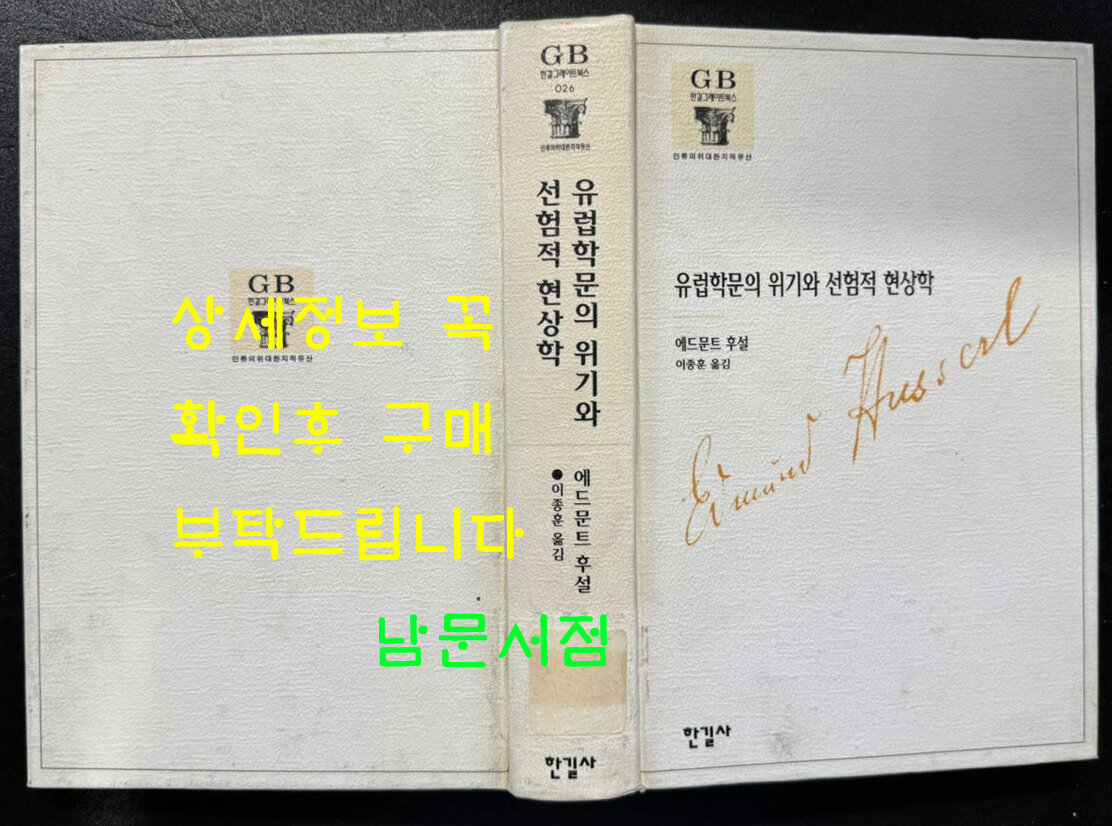 GB
한길그레이트북스
인류의위대한지적유산
상세정보 꼭
확인후 구매
부탁드립니다
남문서점
GB
한길그레이트북스
026
인류의위대한지적유산
유럽학문의 위기와
선험적 현상학
에드문트 후설
●이종훈 옮김
한길사
GB
한길그레이트북스
인류의위대한지적유산
유럽학문의 위기와 선험적 현상학
에드문트 후설
이종훈 옮김
Edmund Husserl
한길사